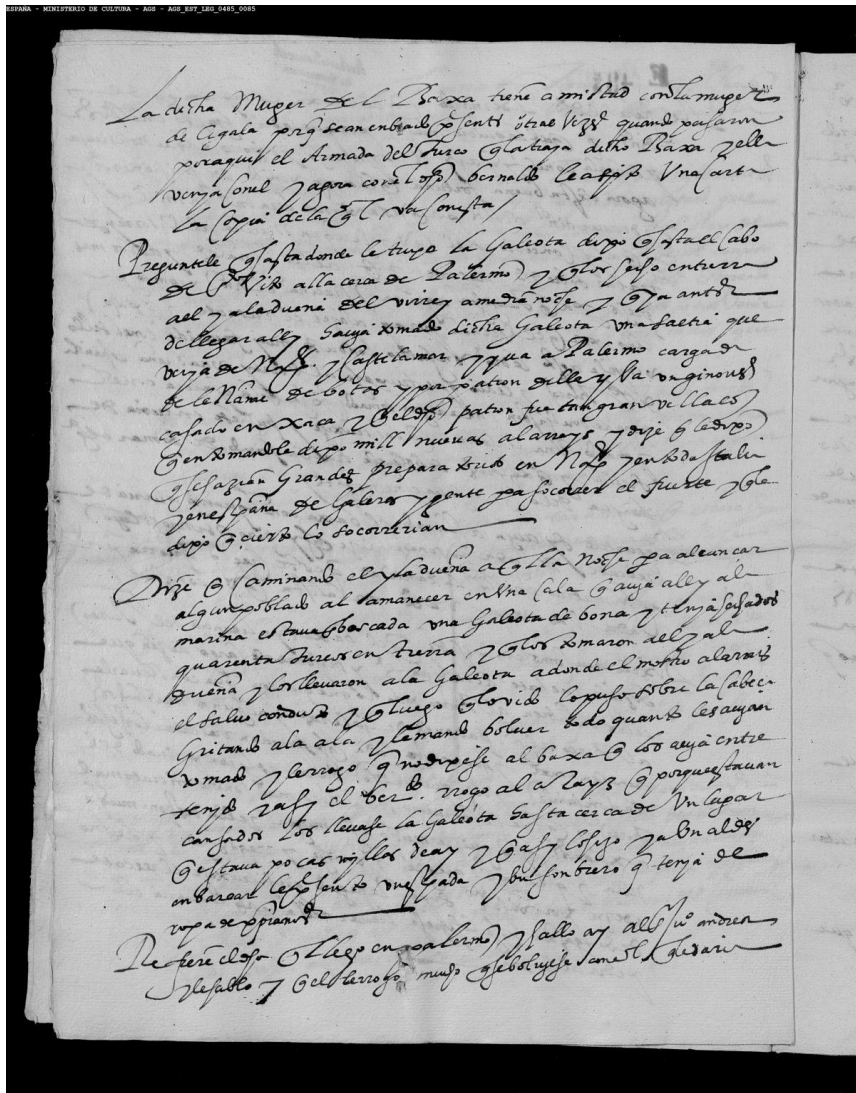 ESPAÑA - MINISTERIO DE CULTURA - AGS - AGS_EST_LEG_0485_0085
La dicha Muger del Baxa tiene amistad con la muger
de Cigala porq sean enbiado psentes otras vezes quando pasaron
por aqui el Armada del Turco q la traya dicho Baxa y ella
venja con el y agora con el dho bernaldo le a Una carta
la Copia de la ql va con esta /
Preguntele q hasta donde le truxo la Galeota dixo q hasta el Cabo
de Vito alla cerca de Palermo y q los hecho en tierra
a el y a la duena del virrey a media noche y q ya antes
de llegar ally havya tomado dicha Galeota una saetia que
venja de y Castelamar y yva a Palermo cargada
de de botas y por patron della yva un ginoves
casado en xaca y q el dho patron fue tan gran vellaco
q en tomandole dixo mill nuevas al arrays y dize q le dixo
q se hazian Grandes preparatorios en y en toda Italia
y en españa de Galeras y gente pa socorrer el fuerte y q le
dixo q cierto lo socorrerian
Dize q Caminando el y la duena aqlla noche pa alcançar
algun poblado al amanecer en Una Cala q avya ally a la
marina estava enboscada una Galeota de bona y tenja hechados
quarenta turcos en tierra y q los tomaron a el y a la
duena y los llevaron a la Galeota adonde el mostro al arrais
el salvo conduto y q luego q lo vido lo puso sobre la Cabeça
Gritando ala ala y le mando bolver todo quanto les avyan
tomado y le rrogo q no dixese al baxa q los avya entre
tenjdo y asy el rrogo al arrays q porque estavan
cansados los llevase la Galeota hasta cerca de Un lugar
q estava pocas myllas de ay y q asy lo hizo y al
enbarcar le psento una espada y Un sonbrero q tenja de
ropa de
Refiere el dho q llego en palermo y hallo ay al andrea
y le hablo y q el le rrogo mucho q se bolvyese con el q le daria